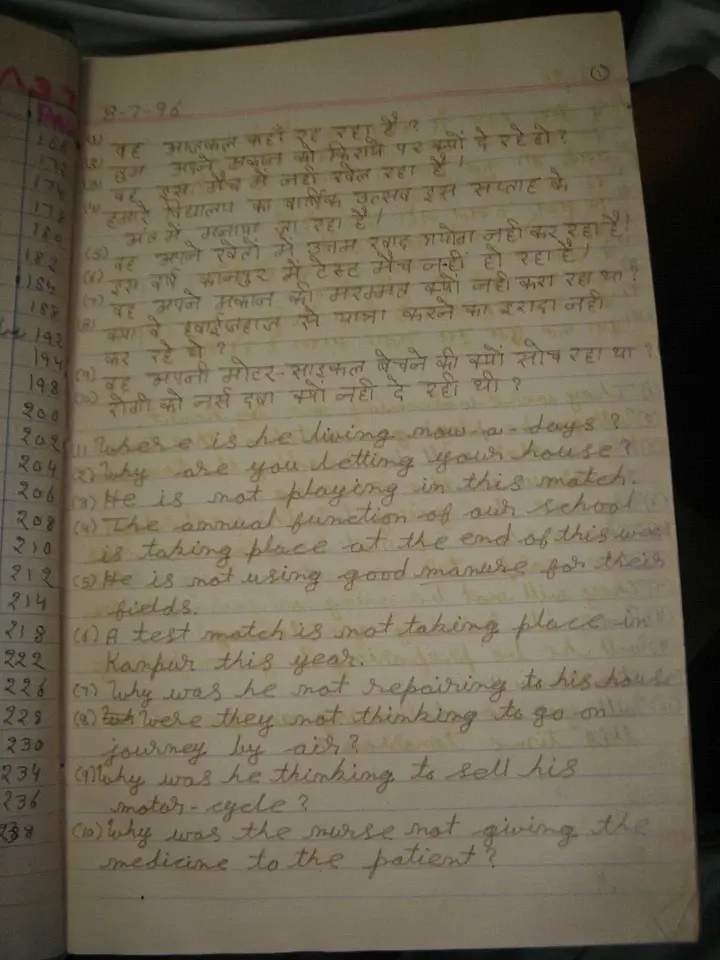 ①
8-7-96
(1) वह आजकल कहाँ रह रहा है ?
(2) तुम अपने मकान को किराये पर क्यों दे रहे हो ?
(3) वह इस मैच में नहीं खेल रहा है ।
(4) हमारे विद्यालय का वार्षिक उत्सव इस सप्ताह के
अंत में मनाया जा रहा है ।
(5) वह अपने खेतों में उत्तम खाद प्रयोग नहीं कर रहा है ।
(6) इस वर्ष कानपुर में टेस्ट मैच नहीं हो रहा है ।
(7) वह अपने मकान की मरम्मत क्यों नहीं करा रहा था ?
(8) क्या वे हवाईजहाज से यात्रा करने का इरादा नहीं
कर रहे थे ?
(9) वह अपनी मोटर-साइकल बेचने की क्यों सोच रहा था ?
(10) रोगी को नर्स दवा क्यों नहीं दे रही थी ?
(1) Where is he living now-a-days ?
(2) Why are you letting your house ?
(3) He is not playing in this match.
(4) The annual function of our school
is taking place at the end of this week
(5) He is not using good manure for their
fields.
(6) A test match is not taking place in
Kanpur this year.
(7) Why was he not repairing to his house
(8) Were they not thinking to go on
journey by air ?
(9) Why was he thinking to sell his
motor-cycle ?
(10) Why was the nurse not giving the
medicine to the patient ?
172
174
178
180
182
184
188
192
194
198
200
202
204
206
208
210
212
214
218
222
226
228
230
234
236
238